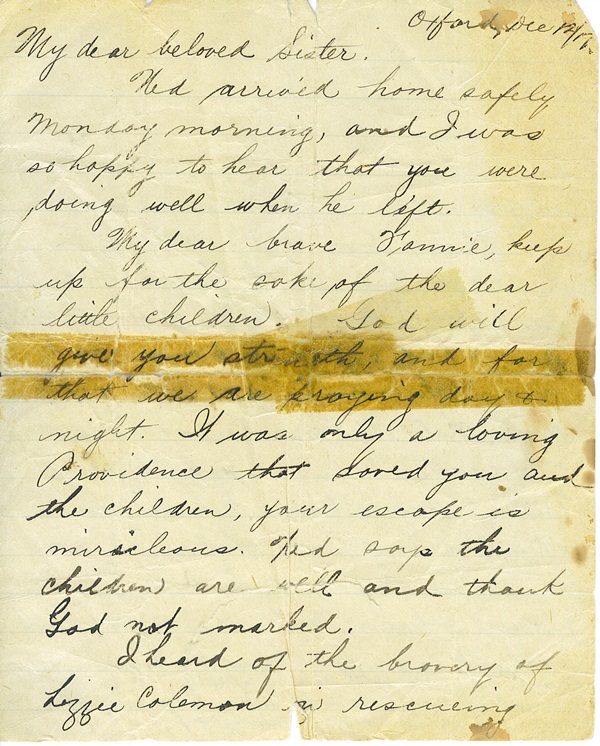 Oxford, Dec 12/17.
My dear beloved Sister.
Ned arrived home safely
Monday morning, and I was
so happy to hear that you were
doing well when he left.
My dear brave Fannie, keep
up for the sake of the dear
little children. God will
give you strength, and for
that we are praying day &
night. It was only a loving
Providence that saved you and
the children, your escape is
miricleous. Ned says the
children are well and thank
God not marked.
I heard of the bravery of
Lizzie Coleman in rescueing